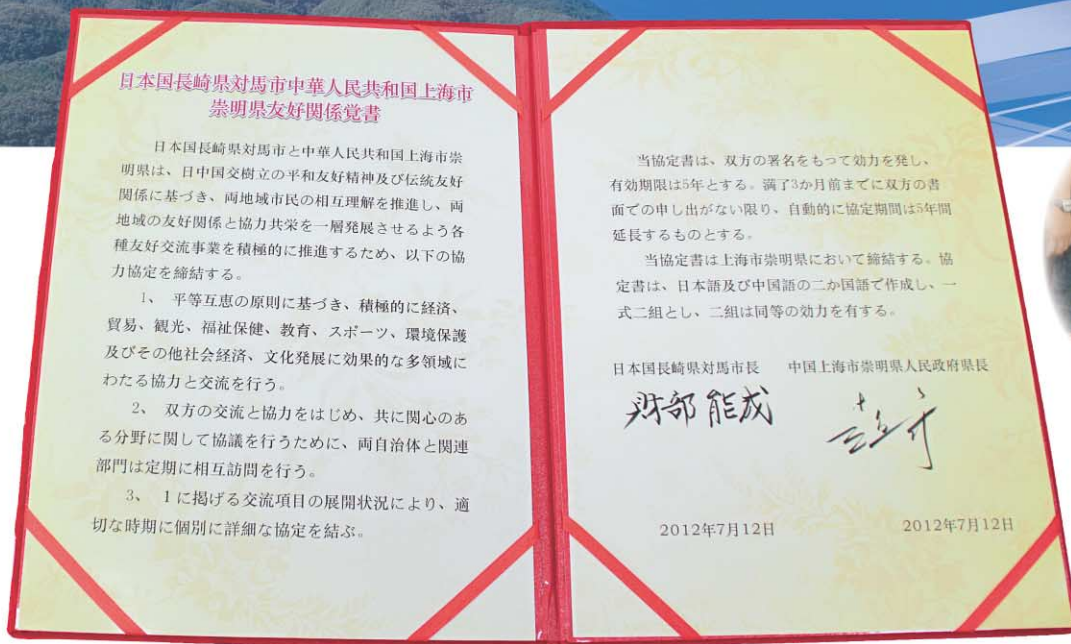 日本国長崎県対馬市中華人民共和国上海市
崇明県友好関係覚書
日本国長崎県対馬市と中華人民共和国上海市崇
明県は、日中国交樹立の平和友好精神及び伝統友好
関係に基づき、両地域市民の相互理解を推進し、両
地域の友好関係と協力共栄を一層発展させるよう各
種友好交流事業を積極的に推進するため、以下の協
力協定を締結する。
1、 平等互恵の原則に基づき、積極的に経済、
貿易、観光、福祉保健、教育、スポーツ、環境保護
及びその他社会経済、文化発展に効果的な多領域に
わたる協力と交流を行う。
2、 双方の交流と協力をはじめ、共に関心のあ
る分野に関して協議を行うために、両自治体と関連
部門は定期に相互訪問を行う。
3、 1に掲げる交流項目の展開状況により、適
切な時期に個別に詳細な協定を結ぶ。
当協定書は、双方の署名をもって効力を発し、
有効期限は5年とする。満了3か月前までに双方の書
面での申し出がない限り、自動的に協定期間は5年間
延長するものとする。
当協定書は上海市崇明県において締結する。協
定書は、日本語及び中国語の二か国語で作成し、一
式二組とし、二組は同等の効力を有する。
日本国長崎県対馬市長 中国上海市崇明県人民政府県長
財部能成
2012年7月12日 2012年7月12日